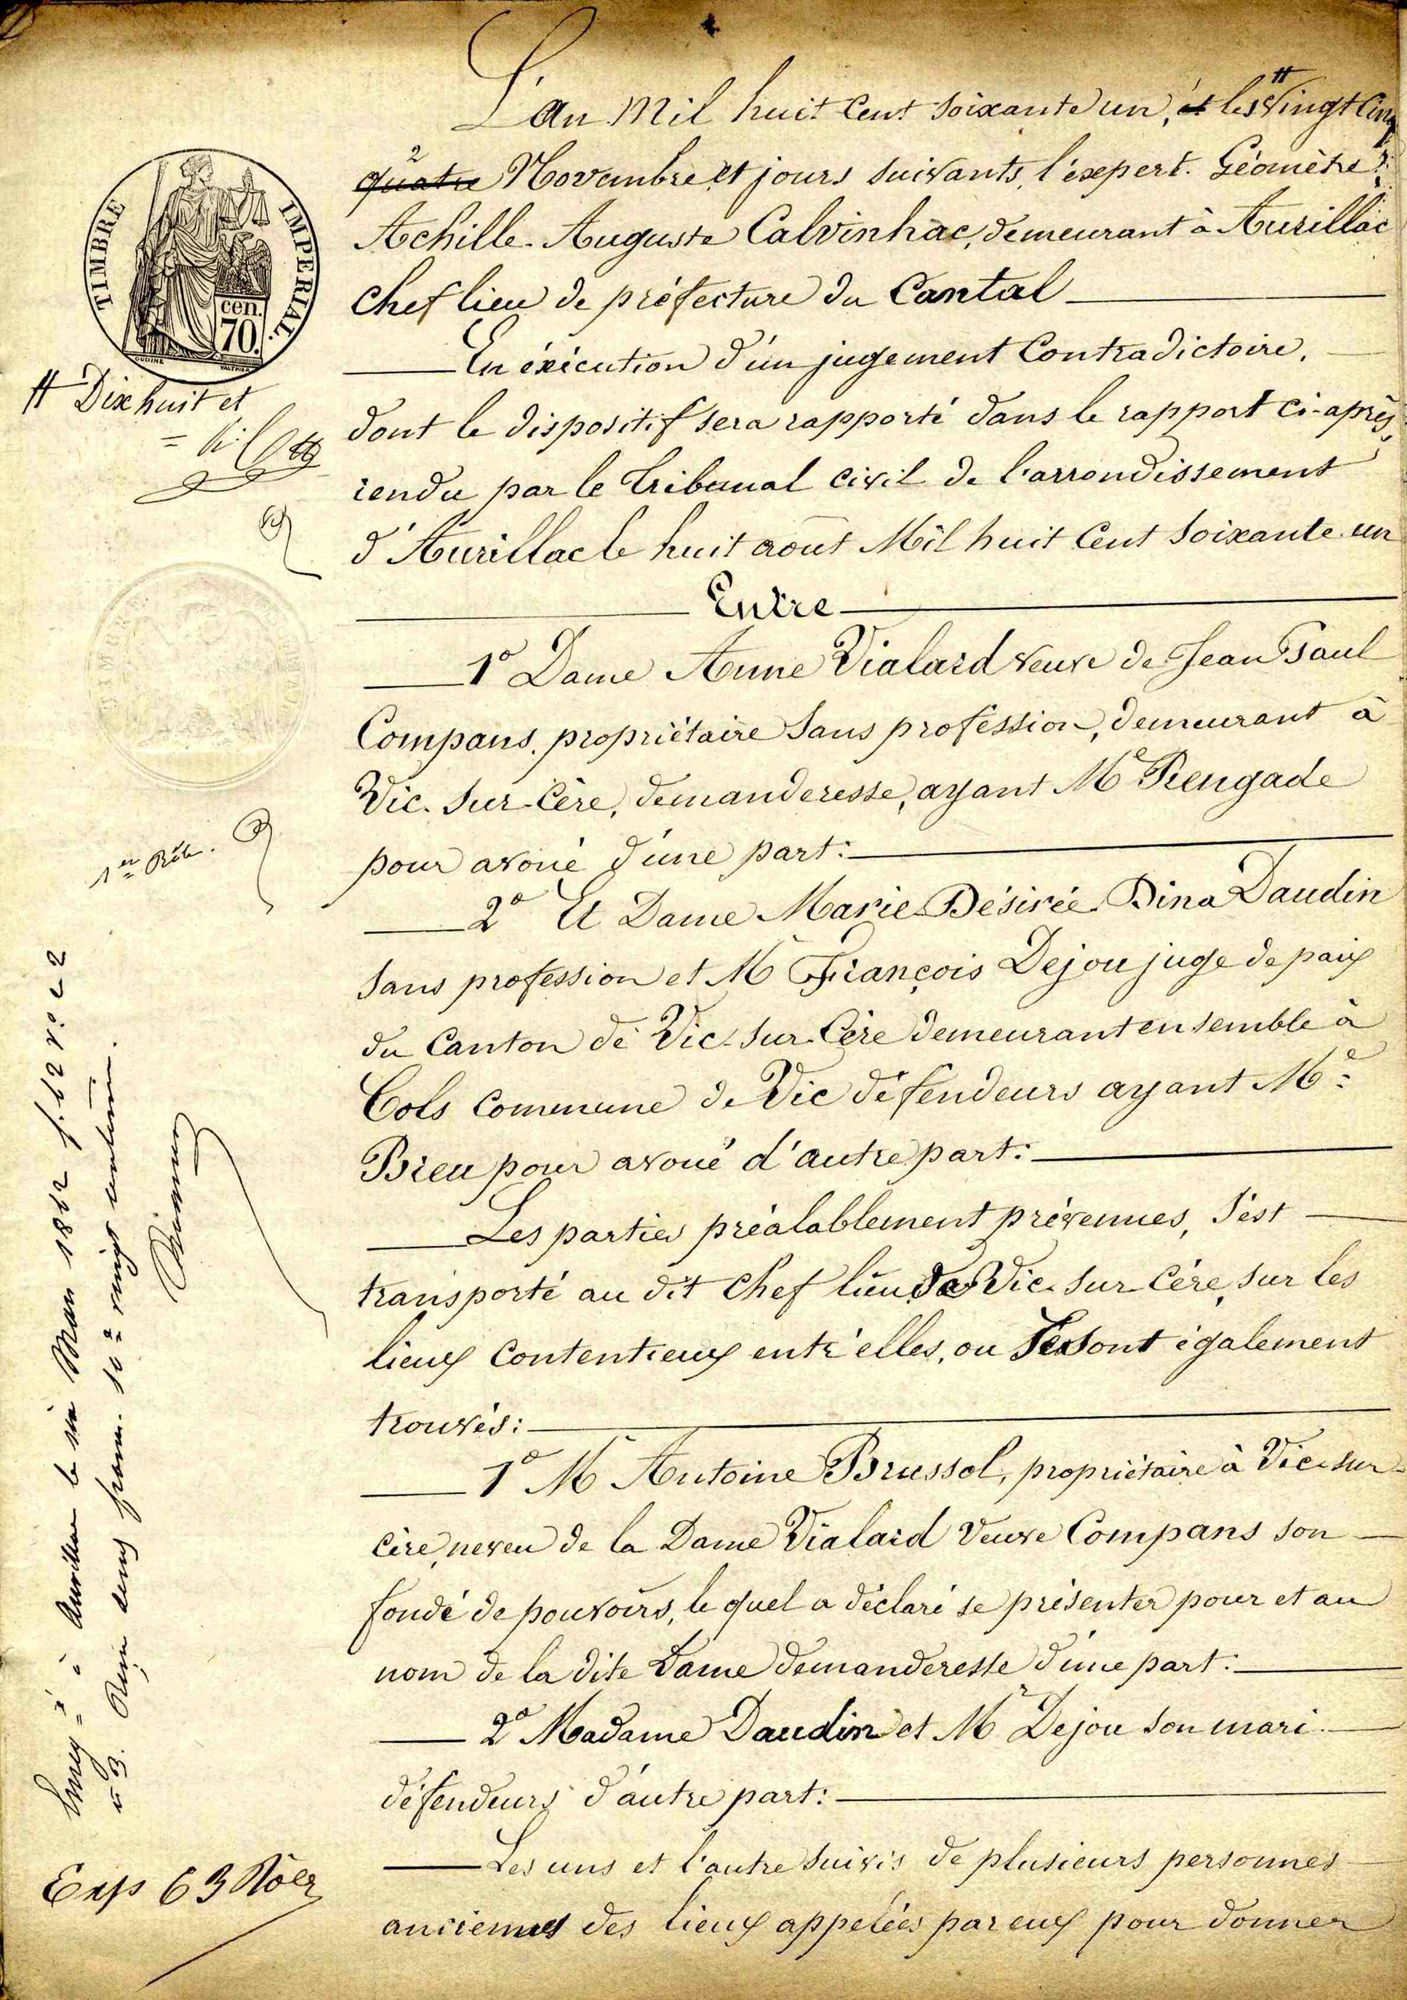 L'an Mil huit Cent soixante un, et les # Vingt Cinq
quatre Novembre et jours suivants, l'éxpert Géomètre
Achille-Auguste Calvinhac, demeurant à Aurillac
Chef lieu de préfecture du Cantal
En éxécution d'un jugement Contradictoire,
dont le dispositif sera rapporté dans le rapport ci-après,
rendu par le Tribunal civil de l'arrondissement
d'Aurillac le huit août Mil huit Cent Soixante un
Entre
1º Dame Anne Vialard veuve de Jean Paul
Compans, propriétaire Sans proféssion, demeurant à
Vic-Sur-Cère, demanderesse, ayant Me Rengade
pour avoué d'une part:
2º Et Dame Marie Désirée Dina Daudin
Sans profession et Mr François Dejou juge de paix
du Canton de Vic-Sur-Cère demeurant ensemble à
Cols commune de Vic défendeurs ayant Me
Breu pour avoué d'autre part:
Les parties préalablement prévenues, S'est
transporté au dit Chef lieu de Vic-Sur-Cère, sur les
lieux contentieux entr'elles, ou Se sont également
trouvés:
1º Mr Antoine Brussol, propriétaire à Vic-sur-
cère, neveu de la Dame Vialard Veuve Compans son
fondé de pouvoirs, le quel a déclaré se présenter pour et au
nom de la dite Dame demanderesse d'une part:
2º Madame Daudin et Mr Dejou son mari
défendeurs d'autre part:
Les uns et l'autre suivis de plusieurs personnes
anciennes des lieux appelées par eux pour donner
TIMBRE IMPERIAL.
cen.
70.
# Dix huit et
1er Rôle.
à Aurillac le six Mars 1862 f. 62 Vo. c 2
Reçu deux francs vingt centimes.
Exp 63 Rôles